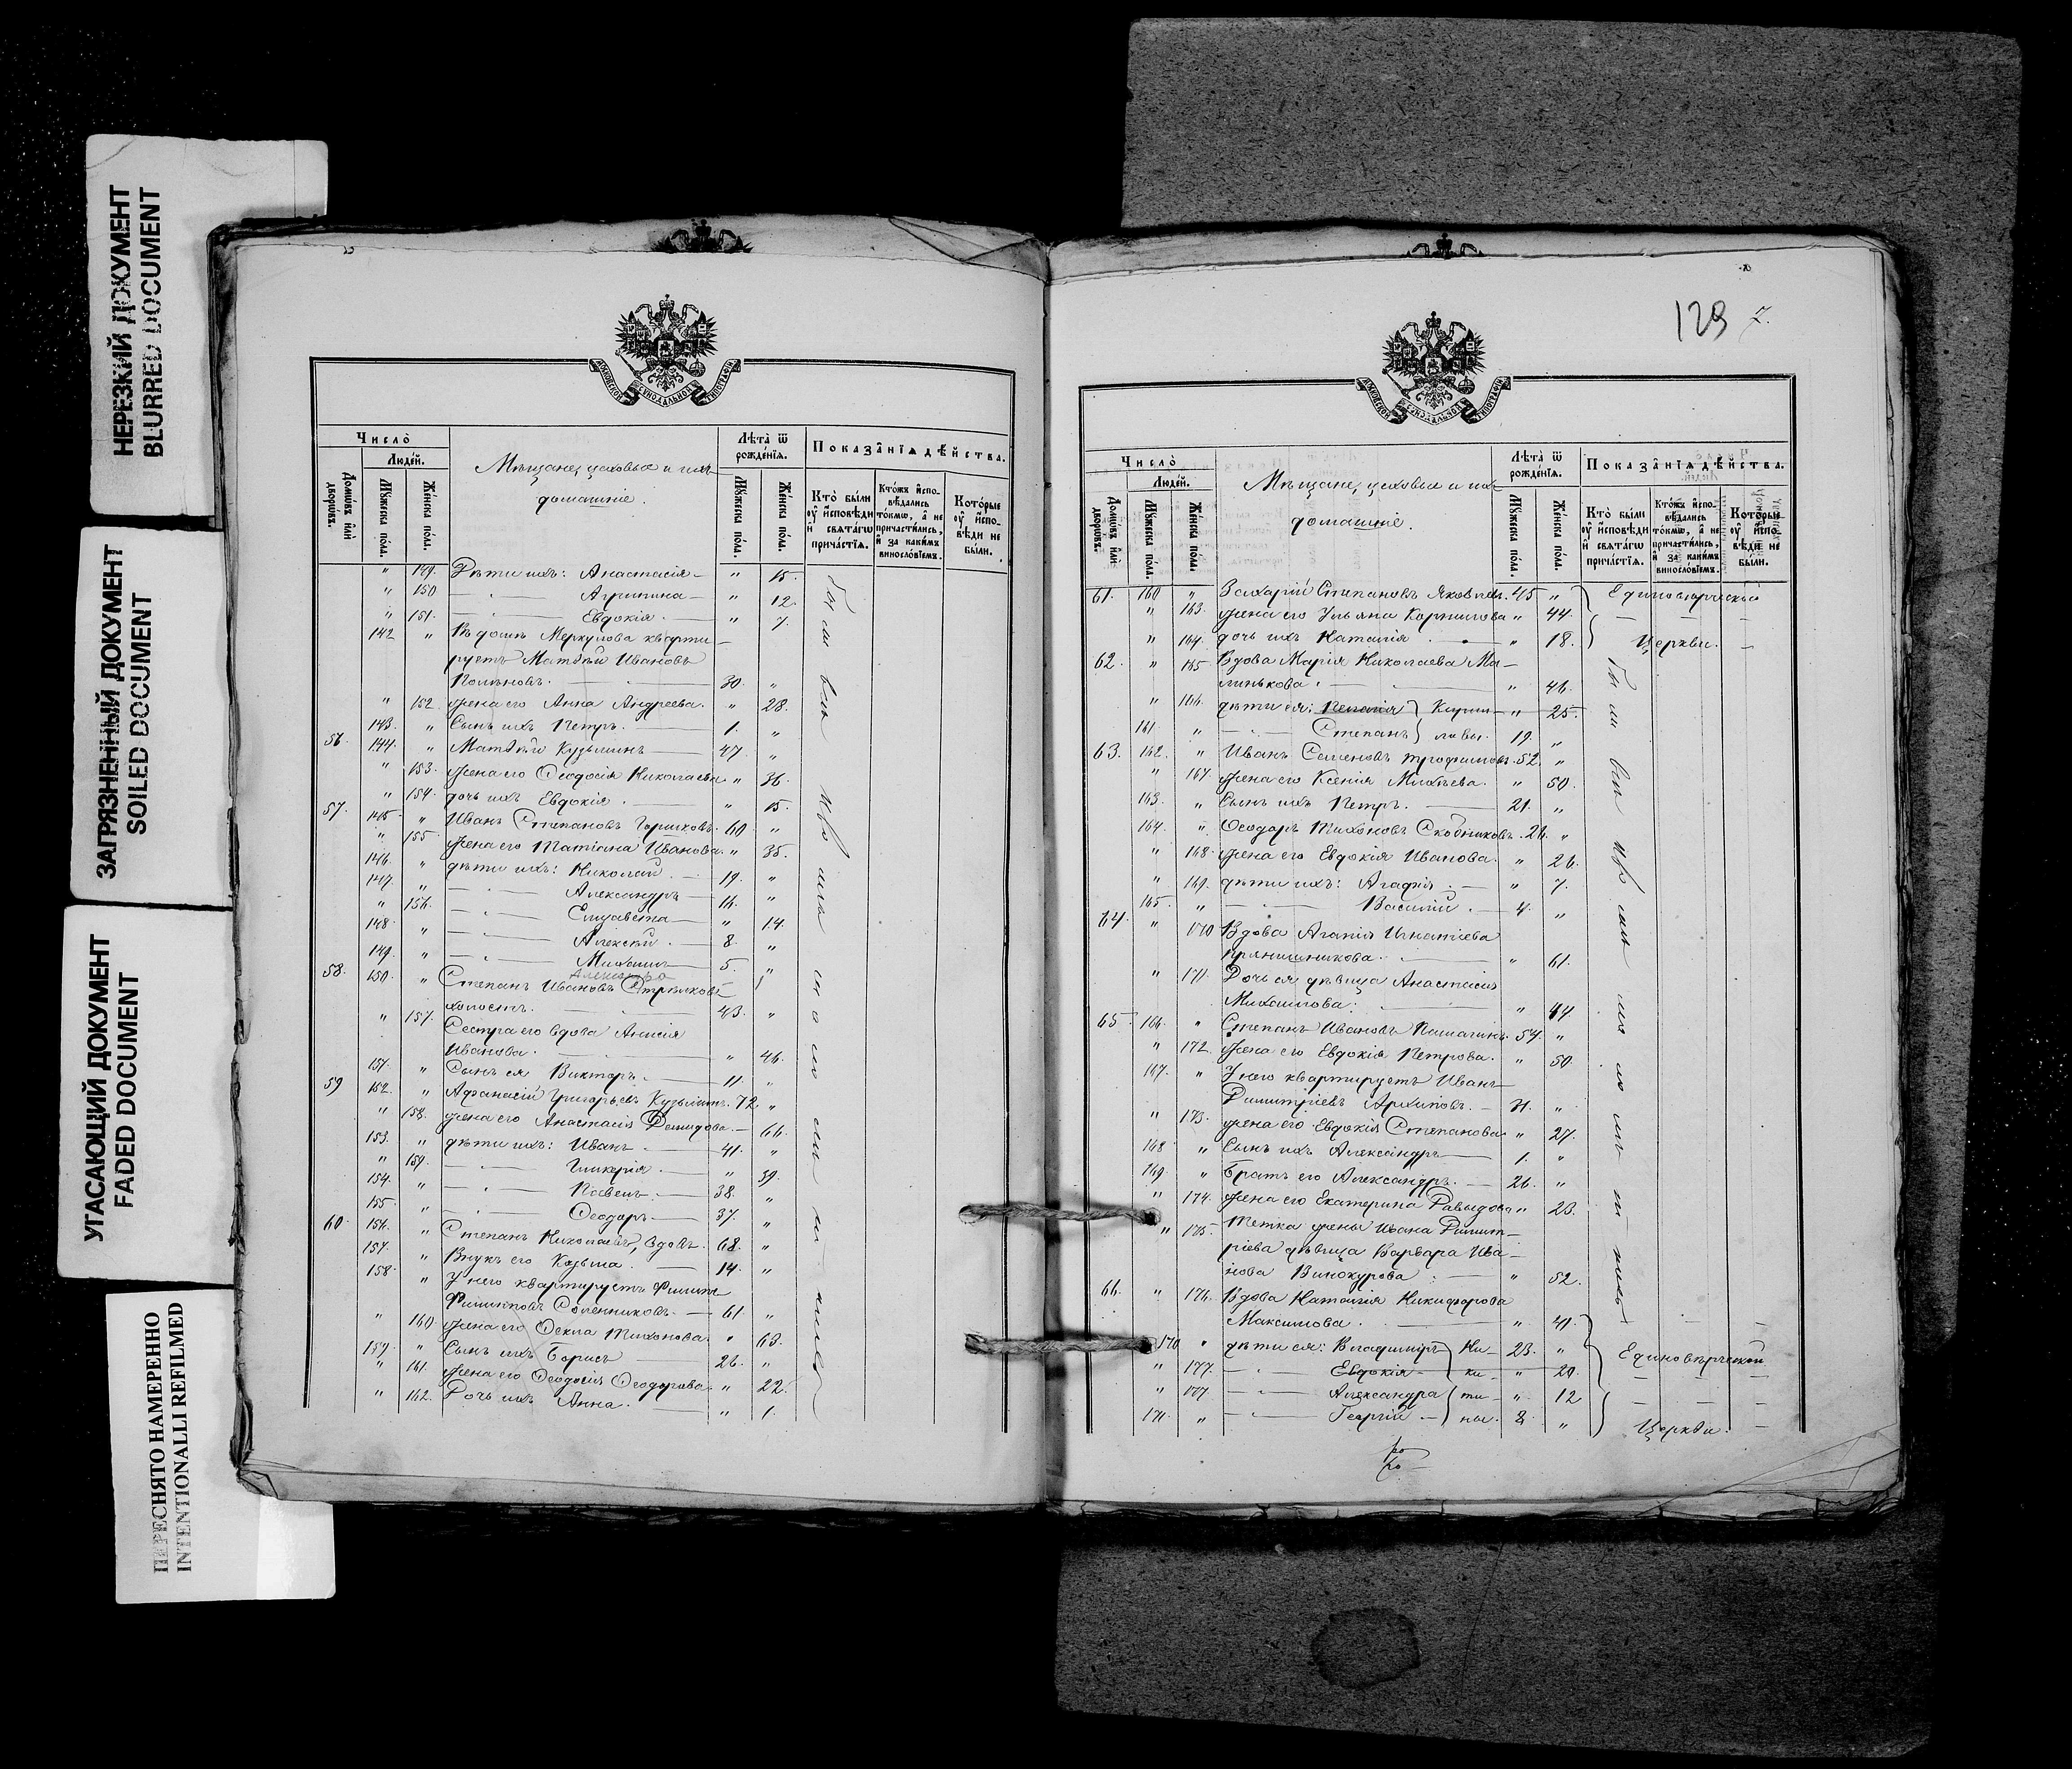 НЕРЕЗКИЙ ДОКУМЕНТ
BLURRED DOCUMENT
ЗАГРЯЗНЕННЫЙ ДОКУМЕНТ
SOILED DOCUMENT
УГАСАЮЩИЙ ДОКУМЕНТ
FADED DOCUMENT
ПЕРЕСНЯТО НАМЕРЕННО
INTENTIONALLI REFILMED
МОСКОВСКОЙ СѴНОДАЛЬНОЙ ТИПОГРАФІИ
Число̀
Люде́й.
Домѡ́въ и҆лѝ дворѡ́въ.
Мꙋ́жеска по́ла.
Же́нска по́ла.
Мѣщане, цеховые и ихъ
домашніе.
Лѣ́та ѿ рожде́нїѧ.
Мꙋ́жеска по́ла.
Же́нска по́ла.
Показа̑нїѧ дѣ́йства.
Кто̀ бы́ли ᲂу҆ и҆сповѣ́ди и҆ свѧта́гѡ прича́стїѧ.
Кто́жъ и҆сповѣ́дались то́кмѡ, а҆ не причасти́лись, и҆ за каки́мъ винословїемъ.
Кото́рые ᲂу҆ и҆сповѣ́ди не бы́ли.
" 149. Дѣти ихъ: Анастасія — " 15.
" 150 — " — Агрипина — " 12.
" 151. — " — Евдокія. — " 7.
142 " Въ домѣ Меркулова кварти-
руетъ Матѳѣй Ивановъ
30. "
" 152 жена его Анна Андреева. " 28.
143. " Сынъ ихъ Петръ. — 1. "
56. 144. " Матѳѣй Кузьминъ — 47. "
" 153. жена его Ѳеодосія Николаева " 36.
" 154. дочь ихъ Евдокія. — " 15.
57. 145. " Иванъ Степановъ Горшковъ. 60 "
" 155 жена его Татіана Иванова. " 35.
146. " дѣти ихъ: Николай. — 19. "
147. " — " — Александръ — 16. "
" 156. — " — Елисавета — " 14.
148. " — " — Алексѣй. — 8. "
149. " — " — Михаилъ — 5. "
58. 150. " Степанъ Ивановъ Стрѣлковъ
холостъ. — 43. "
" 157. Сестра его вдова Анисія
Иванова. — " 46.
151. " Сынъ ея Викторъ. — 11. "
59 152. " Аѳанасій Григорьевъ Кузьминъ. 72. "
" 158. жена его Анастасія Демидова. — 66.
153. " дѣти ихъ: Иванъ. — 41. "
" 159. — " — Гликерія. — " 39.
154. " — " — Павелъ. — 38. "
155. " — " — Ѳеодоръ — 37. "
60. 156. " Степанъ Николаевъ, вдовъ. 68. "
157. " Внукъ его Козьма. — 14. "
158. " У него квартируетъ Филиппъ
Филипповъ — 61. "
" 160. жена его Ѳекла Тихонова. " 63.
159. " Сынъ ихъ Борисъ — 26. "
" 161. жена его Ѳеодосія Ѳеодорова. " 22.
" 162. Дочь ихъ Анна. — " 1.
129 7.
МОСКОВСКОЙ СѴНОДАЛЬНОЙ ТИПОГРАФІИ
Число̀
Люде́й.
Домѡ́въ и҆лѝ дворѡ́въ.
Мꙋ́жеска по́ла.
Же́нска по́ла.
Мѣщане, цеховые и ихъ
домашніе.
Лѣ́та ѿ рожде́нїѧ.
Мꙋ́жеска по́ла.
Же́нска по́ла.
Показа̑нїѧ дѣ́йства.
Кто̀ бы́ли ᲂу҆ и҆сповѣ́ди и҆ свѧта́гѡ прича́стїѧ.
Кто́жъ и҆сповѣ́дались то́кмѡ, а҆ не причасти́лись, и҆ за каки́мъ винословїемъ.
Кото́рые ᲂу҆ и҆сповѣ́ди не бы́ли.
61. 160 " Захарій Степановъ Яковлевъ. 45 " Единовѣрческой
" 163. жена его Ульяна Корнилова " 44.
" 164. дочь ихъ Наталія. — " 18. Церкви.
62. " 165 Вдова Марія Николаева Ма-
линькова. — " 46.
" 166. дѣти ея: Пелагія Кирил- " 25.
161. " — Степанъ ловы. 19. "
63. 162. " Иванъ Семеновъ Трофимовъ. 52. "
" 167. жена его Ксенія Михѣева. " 50.
163. " Сынъ ихъ Петръ. — 21. "
164. " Ѳеодоръ Тихоновъ Скобниковъ. 26. "
" 168. жена его Евдокія Иванова. " 26.
" 169. дѣти ихъ: Агафія. — " 7.
165. " — " — Василій. — 4. "
64. " 170 Вдова Агапія Игнатіева
Прянишникова. — " 61.
" 171. Дочь ея дѣвица Анастасія
Михаилова. — " 44.
65. 166. " Степанъ Ивановъ 54. "
" 172. жена его Евдокія Петрова. " 50.
167. " У него квартируетъ Иванъ
Димитріевъ Архиповъ. — 31. "
" 173. жена его Евдокія Степанова " 27.
168 " Сынъ ихъ Александръ — 1. "
169 " Братъ его Александръ. — 26. "
" 174. жена его Екатерина Давыдова " 23.
" 175. Тетка жены Ивана Димит-
ріева дѣвица Варвара Ива-
нова Винокурова. — " 52.
66. " 176. Вдова Наталія Никифорова
Максимова. — " 41.
170 " дѣти ея: Владиміръ Ни- 23. " Единовѣрческой
" 177. — Евдокія ки- " 20.
" 177. — " — Александра ти- " 12
171. " — " — Георгій — ны. 8. " Церкви.